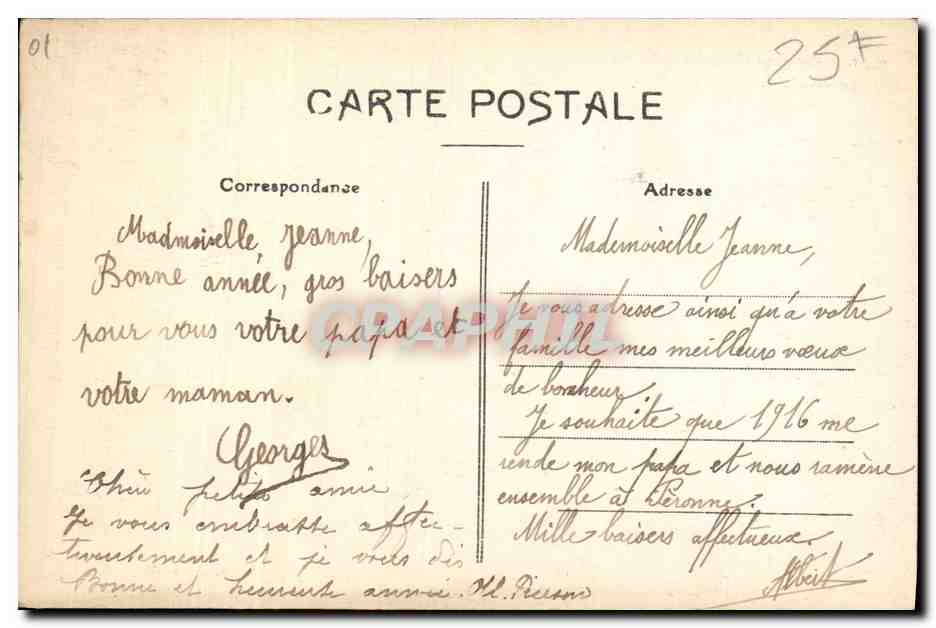 01
25F
CARTE POSTALE
Correspondance
Madmoiselle Jeanne,
Bonne année, gros baisers
pour vous votre papa et
votre maman.
Georges
Chère petite amie
Je vous embrasse affec-
tueusement et je vous dis
Bonne et heureuse année. Pierson
Adresse
Mademoiselle Jeanne,
Je vous adresse ainsi qu'à votre
famille mes meilleurs vœux
de bonheur.
Je souhaite que 1916 me
rende mon papa et nous ramène
ensemble à Péronne.
Mille baisers affectueux.
Albert
CPAPHIL